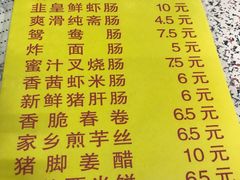 韭皇鲜虾肠 10元
爽滑纯斋肠 4.5元
鸳鸯肠 7.5元
炸面肠 5元
蜜汁叉烧肠 7.5元
香茜虾米肠 6元
新鲜猪肝肠 6元
香脆春卷 6.5元
家乡煎芋丝 6.5元
猪脚姜醋 10元
6.5元